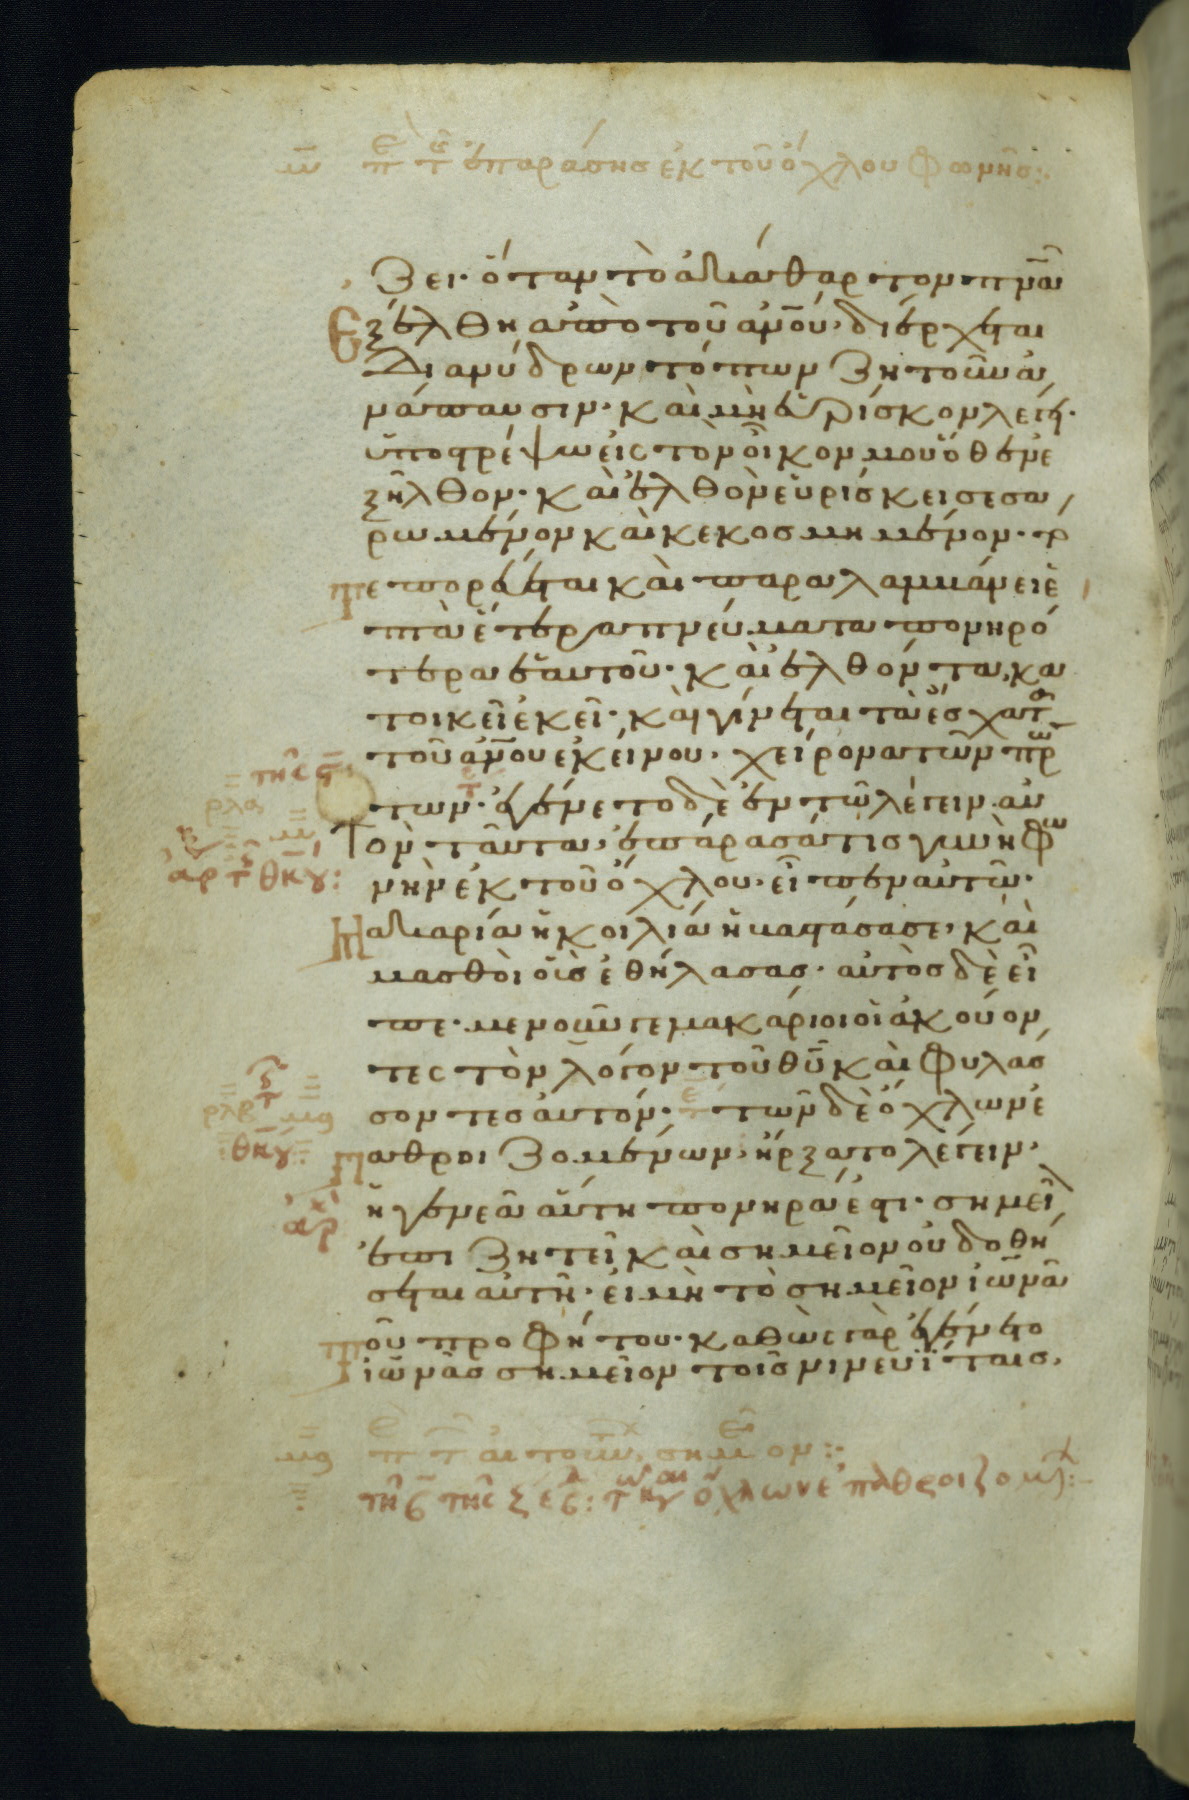 μ π τ ἐπαράσης ἐκ τοῦ ὄχλου φωνῆς:
ζει· ὅταν τὸ ἀκάθαρτον πνα
ἐξέλθη ἀπὸ τοῦ ανου, διέρχεται
δι ἀνύδρων τόπων ζητοῦν ἀ
νάπαυσιν· καὶ μὴ εὑρίσκον λέγει·
ὑποστρέψω εἰς τὸν οἶκόν μου ὅθεν ἐ
ξῆλθον· καὶ ἐλθὸν εὑρίσκει σεσα
ρωμένον καὶ κεκοσμημένον· τό
τε πορεύεται καὶ παραλαμβάνει ἑ
πτὰ ἕτερα πνεύματα πονηρό
τερα ἑαυτοῦ· καὶ ἐλθόντα, κα
τοικεῖ ἐκεῖ· καὶ γίνεται τὰ ἔσχατ
τοῦ ανου ἐκείνου, χείρονα τῶν πρ
της ϛ
των· ἐγένετο δὲ ἐν τῶ λέγειν αὐ
ρλα
μ
τὸν ταῦτα, ἐπάρασά τις γυνὴ φω
ἀρ τ θκυ:
νὴν ἐκ τοῦ ὄχλου· εἶπεν αὐτῶ·
μακαρία ἡ κοιλία ἡ βαστάσασά σε, καὶ
μασθοὶ οἷς ἐθήλασας· αὐτὸς δὲ εἶ
πε· μενοῦν γε μακάριοι οἱ ἀκούον
τες τὸν λόγον τοῦ θυ καὶ φυλάσ
ρλβ μα
σοντες αὐτόν· τῶν δὲ ὄχλων ἐ
θκυ:
παθροιζομένων, ἤρξατο λέγειν,
ἀρ
ἡ γενεὰ αὕτη πονηρά ἐστι· σημεῖ
ἐπιζητεῖ καὶ σημεῖον οὐ δοθή
σεται αὐτῆ· εἰ μὴ τὸ σημεῖον ἰωνᾶ
τοῦ προφήτου· καθὼς γὰρ ἐγένετο
ἰωνᾶς σημεῖον τοῖς νινευΐταις,
μα π τ αἰτούν σημ ον:
τῆς ϛ τῆς ξ εϛ: τ κυ ὄχλων ἐπαθροιζομ: